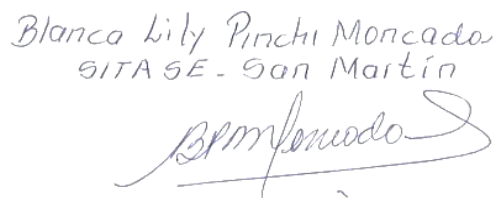 Blanca Lily Pinchi Moncada
SITASE - San Martín
BPMoncada